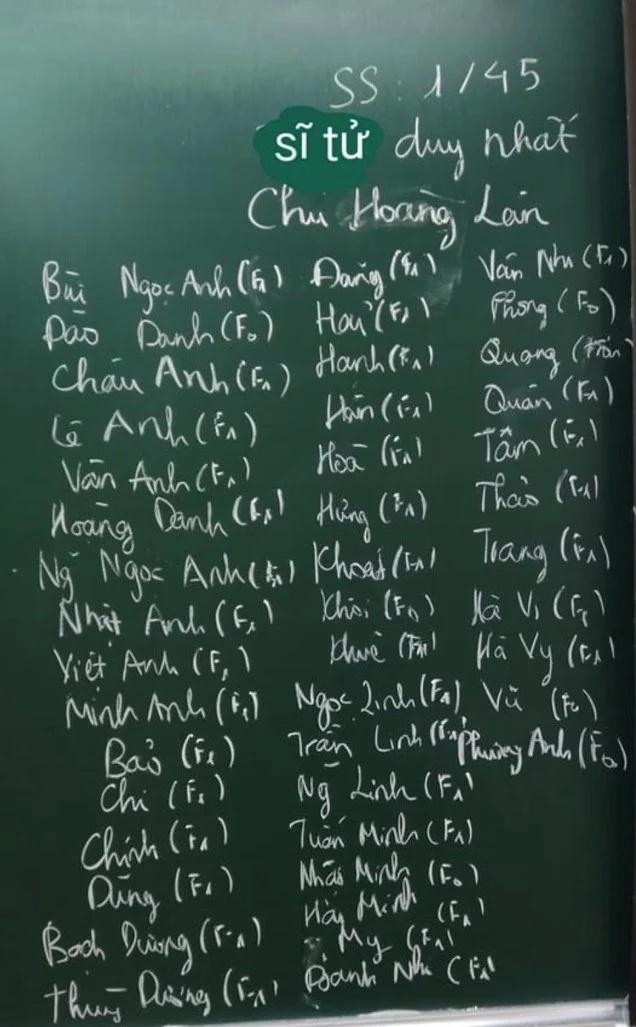 SS: 1/45
sĩ tử duy nhất
Chu Hoàng Lân
Bùi Ngọc Anh (F1)
Đào Danh (F0)
Châu Anh (F1)
Lê Anh (F1)
Vân Anh (F1)
Hoàng Danh (F1)
Ng Ngọc Anh (F1)
Nhật Anh (F1)
Việt Anh (F1)
Minh Anh (F1)
Bảo (F1)
Chi (F1)
Chính (F1)
Dũng (F1)
Bạch Dương (F1)
Thùy Dương (F1)
Đăng (F1)
(F1)
Hạnh (F1)
Hân (F1)
Hoà (F1)
Hưng (F1)
(F1)
Khôi (F0)
Khuê (F1)
Ngọc Linh (F1)
Trần Linh (F1)
Ng Linh (F1)
Tuấn Minh (F1)
Minh (F0)
Minh (F1)
My (F1)
Nhi (F1)
Vân Nhi (F1)
Phong (F0)
Quang
Quân (F1)
Tâm (F1)
Thảo (F1)
Trang (F1)
Hà Vi (F1)
Hà Vy (F1)
Vũ (F0)
Phương Anh (F0)